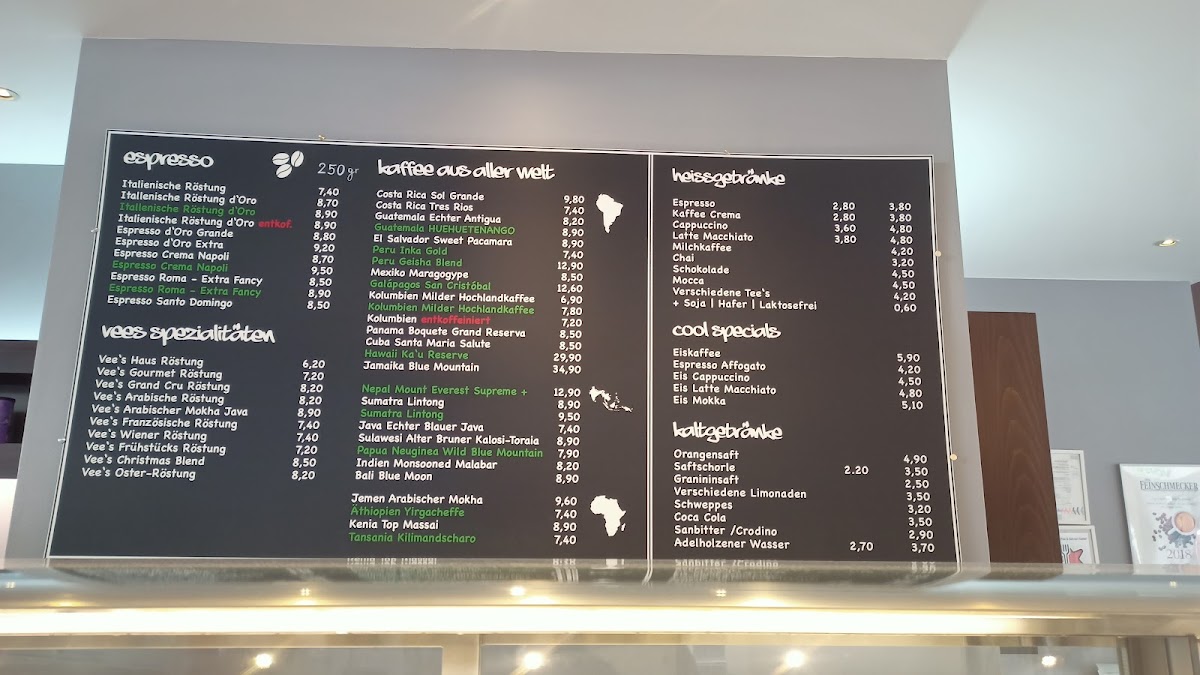 espresso 250gr
Italienische Röstung 7,40
Italienische Röstung d'Oro 8,70
Italienische Röstung d'Oro 8,90
Italienische Röstung d'Oro entkof. 8,90
Espresso d'Oro Grande 8,80
Espresso d'Oro Extra 9,20
Espresso Crema Napoli 8,70
Espresso Crema Napoli 9,50
Espresso Roma - Extra Fancy 8,50
Espresso Roma - Extra Fancy 8,90
Espresso Santo Domingo 8,50
vees spezialitäten
Vee's Haus Röstung 6,20
Vee's Gourmet Röstung 7,20
Vee's Grand Cru Röstung 8,20
Vee's Arabische Röstung 8,20
Vee's Arabischer Mokha Java 8,90
Vee's Französische Röstung 7,40
Vee's Wiener Röstung 7,40
Vee's Frühstücks Röstung 7,20
Vee's Christmas Blend 8,50
Vee's Oster-Röstung 8,20
kaffee aus aller welt
Costa Rica Sol Grande 9,80
Costa Rica Tres Rios 7,40
Guatemala Echter Antigua 8,20
Guatemala HUEHUETENANGO 8,90
El Salvador Sweet Pacamara 8,90
Peru Inka Gold 7,40
Peru Geisha Blend 12,90
Mexiko Maragogype 8,50
Galápagos San Cristóbal 12,60
Kolumbien Milder Hochlandkaffee 6,90
Kolumbien Milder Hochlandkaffee 7,80
Kolumbien entkoffeiniert 7,20
Panama Boquete Grand Reserva 8,50
Cuba Santa Maria Salute 8,50
Hawaii Ka'u Reserve 29,90
Jamaika Blue Mountain 34,90
Nepal Mount Everest Supreme + 12,90
Sumatra Lintong 8,90
Sumatra Lintong 9,50
Java Echter Blauer Java 7,40
Sulawesi Alter Bruner Kalosi-Toraia 8,90
Papua Neuginea Wild Blue Mountain 7,90
Indien Monsooned Malabar 8,20
Bali Blue Moon 8,90
Jemen Arabischer Mokha 9,60
Äthiopien Yirgacheffe 7,40
Kenia Top Massai 8,90
Tansania Kilimandscharo 7,40
heissgetränke
Espresso 2,80 3,80
Kaffee Crema 2,80 3,80
Cappuccino 3,60 4,80
Latte Macchiato 3,80 4,80
Milchkaffee 4,20
Chai 3,20
Schokolade 4,50
Mocca 4,50
Verschiedene Tee's 4,20
+ Soja | Hafer | Laktosefrei 0,60
cool specials
Eiskaffee 5,90
Espresso Affogato 4,20
Eis Cappuccino 4,50
Eis Latte Macchiato 4,80
Eis Mokka 5,10
kaltgetränke
Orangensaft 4,90
Saftschorle 2.20 3,50
Granininsaft 2,50
Verschiedene Limonaden 3,50
Schweppes 3,20
Coca Cola 3,50
Sanbitter /Crodino 2,90
Adelholzener Wasser 2,70 3,70
FEINSCHMECKER
2018